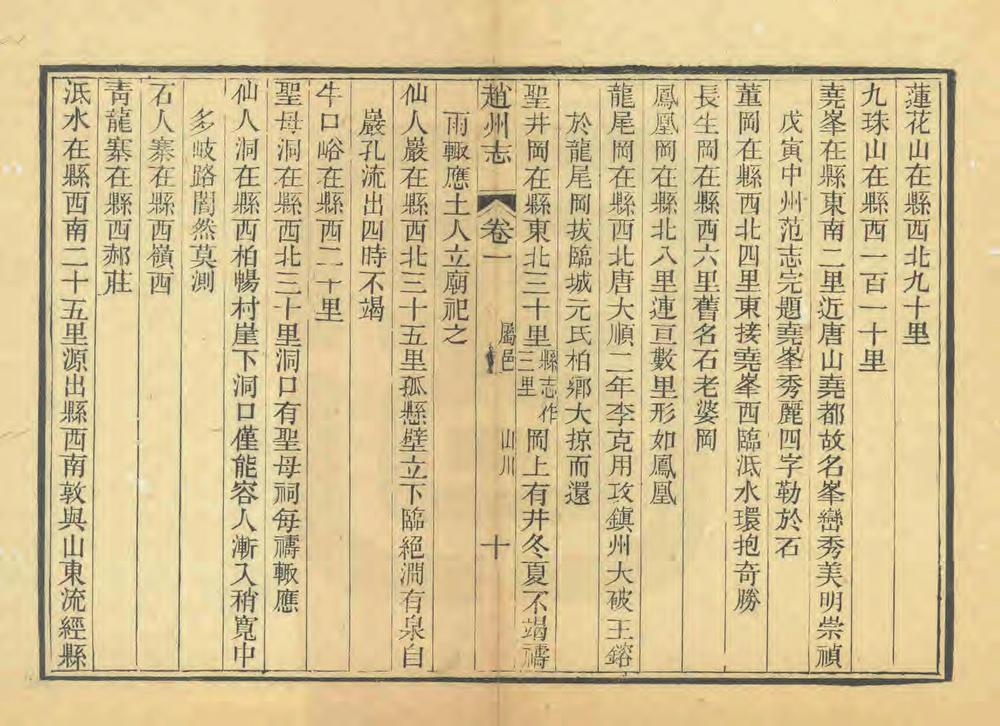 蓮花山在縣西北九十里
九珠山在縣西一百一十里
堯峯在縣東南二里近唐山堯都故名峯巒秀美明崇禎
戊寅中州范志完題堯峯秀麗四字勒於石
董岡在縣西北四里東接堯峯西臨泜水環抱奇勝
長生岡在縣西六里舊名石老婆岡
鳳凰岡在縣北八里連亘數里形如鳳凰
龍尾岡在縣西北唐大順二年李克用攻鎮州大破王鎔
於龍尾岡拔臨城元氏柏鄉大掠而還
聖井岡在縣東北三十里縣志作三里岡上有井冬夏不竭禱
趙州志 卷一 屬邑 山川 十
雨輙應土人立廟祀之
仙人巖在縣西北三十五里孤懸壁立下臨絕澗有泉自
巖孔流出四時不竭
牛口峪在縣西二十里
聖母洞在縣西北三十里洞口有聖母祠每禱輙應
仙人洞在縣西柏暢村崖下洞口僅能容人漸入稍寬中
多岐路闇然莫測
石人寨在縣西嶺西
靑龍寨在縣西郝莊
泜水在縣西南二十五里源出縣西南敦與山東流經縣